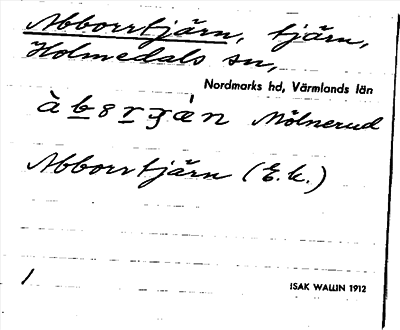 Abborrtjärn, tjärn,
Holmedals sn,
Nordmarks hd, Värmlands län
Mölnerud
Abborrtjärn (E.k.)
1
ISAK WALLIN 1912